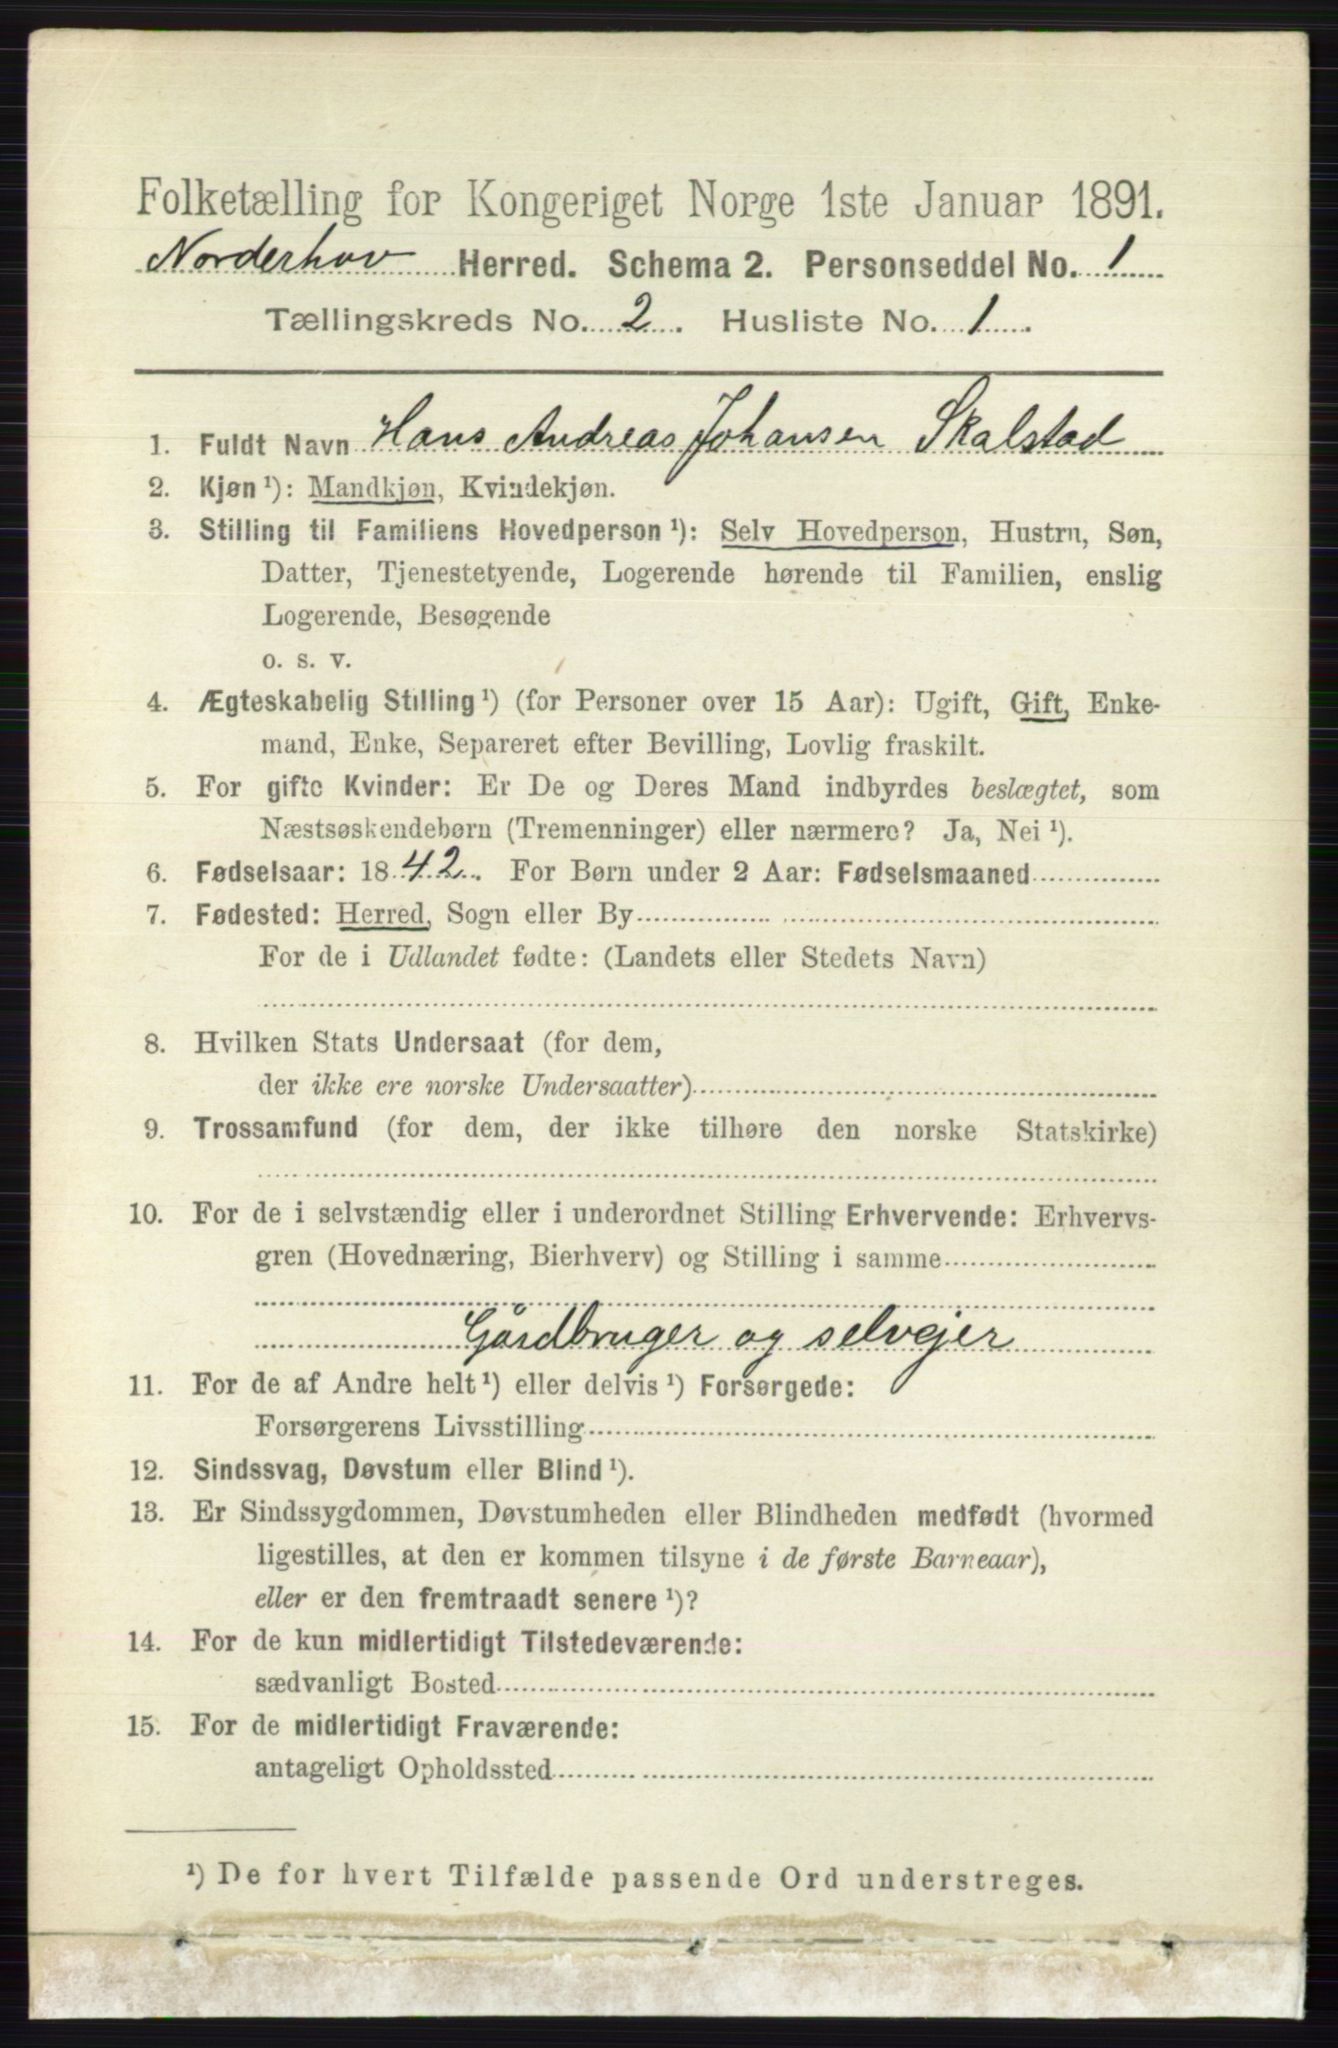 Folketælling for Kongeriget Norge 1ste Januar 1891.
Norderhov Herred. Schema 2. Personseddel No. 1
Tællingskreds No. 2. Husliste No. 1.
1. Fuldt Navn Hans Andreas Johansen Skalstad
2. Kjøn ¹): Mandkjøn, Kvindekjøn.
3. Stilling til Familiens Hovedperson ¹): Selv Hovedperson, Hustru, Søn,
Datter, Tjenestetyende, Logerende hørende til Familien, enslig
Logerende, Besøgende
o. s. v.
4. Ægteskabelig Stilling ¹) (for Personer over 15 Aar): Ugift, Gift, Enke-
mand, Enke, Separeret efter Bevilling, Lovlig fraskilt.
5. For gifte Kvinder: Er De og Deres Mand indbyrdes beslægtet, som
Næstsøskendebørn (Tremenninger) eller nærmere? Ja, Nei ¹).
6. Fødselsaar: 1842. For Børn under 2 Aar: Fødselsmaaned
7. Fødested: Herred, Sogn eller By
For de i Udlandet fødte: (Landets eller Stedets Navn)
8. Hvilken Stats Undersaat (for dem,
der ikke ere norske Undersaatter)
9. Trossamfund (for dem, der ikke tilhøre den norske Statskirke)
10. For de i selvstændig eller i underordnet Stilling Erhvervende: Erhvervs-
gren (Hovednæring, Bierhverv) og Stilling i samme
Gårdbruger og selvejer
11. For de af Andre helt ¹) eller delvis ¹) Forsørgede:
Forsørgerens Livsstilling
12. Sindssvag, Døvstum eller Blind ¹).
13. Er Sindssygdommen, Døvstumheden eller Blindheden medfødt (hvormed
ligestilles, at den er kommen tilsyne i de første Barneaar),
eller er den fremtraadt senere ¹)?
14. For de kun midlertidigt Tilstedeværende:
sædvanligt Bosted
15. For de midlertidigt Fraværende:
antageligt Opholdssted
¹) De for hvert Tilfælde passende Ord understreges.